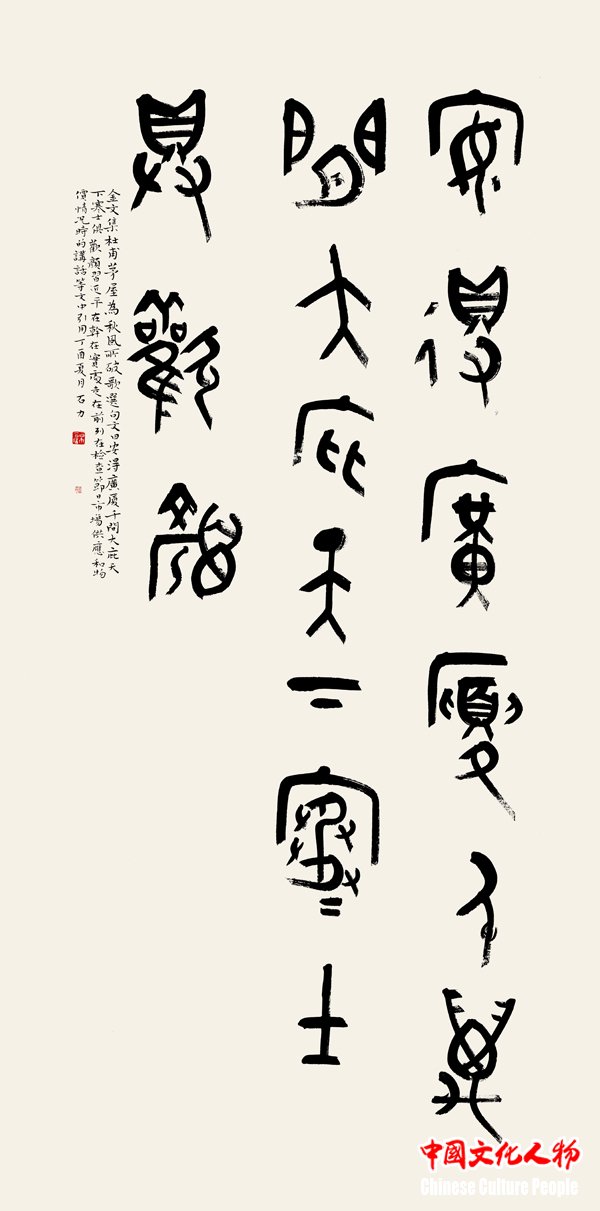 安得廣廈千萬
間大庇天下寒士
俱歡顏
金文集杜甫茅屋為秋風所破歌選句文曰安得廣廈千間大庇天
下寒士俱歡顏習近平在幹在實處走在前列在檢查節日市場供應和物
價情況時的講話等文中引用丁酉夏月石力
中國文化人物
Chinese Culture People